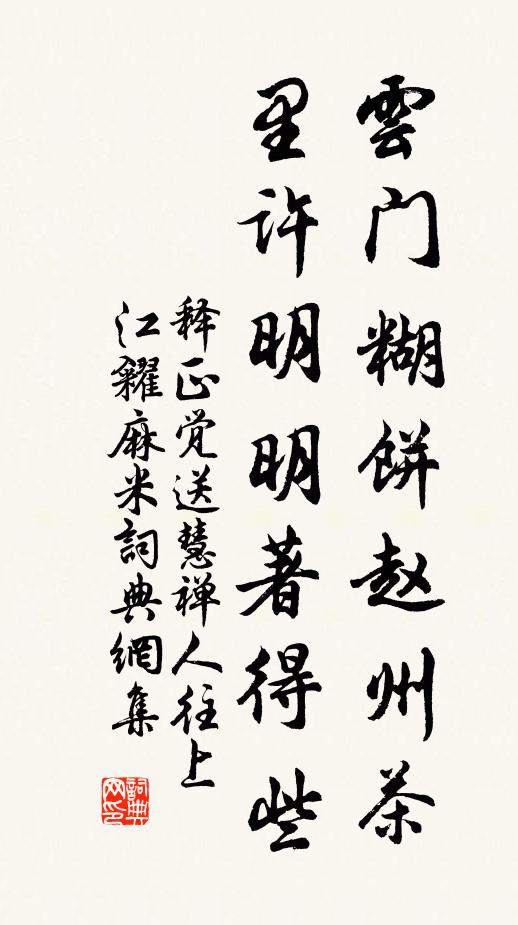 雲门糊餅赵州茶
里许明明著得些
释正觉送慧禅人往上
江糴麻米詞典網集
詞典
网印